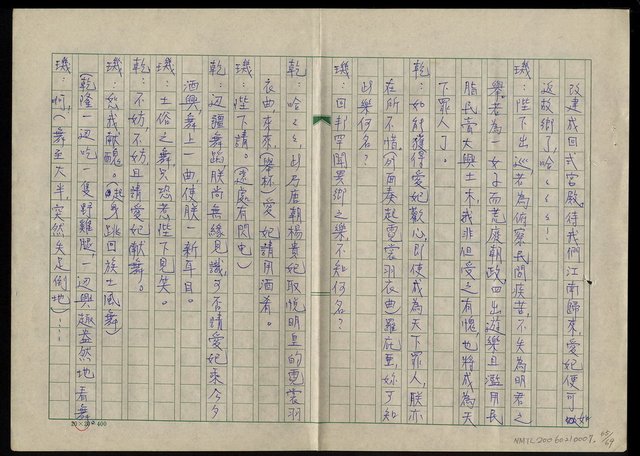 改建成回式宮殿，待我們江南歸來愛妃便可
返故鄉了，哈〻〻！
璣：陛下出巡者為俯察民間疾苦，不失為明君之
舉，若為一女子而荒廢朝政，四出遊樂且濫用民
脂民膏大興土木，我非但受之有愧，也將成為天
下罪人了。
乾：如能獲得愛妃歡心，即使成為天下罪人，朕亦
在所不惜，（面奏起霓裳羽衣曲）羅庇亞，妳可知
此樂何名？
璣：回邦罕聞異鄉之樂不知何名？
乾：哈〻，此乃唐朝楊貴妃取悅明皇的霓裳羽
衣曲，來來，（舉杯）愛妃請用酒肴。
璣：陛下請。（遠處有閃电）
乾：边疆舞蹈，朕尚無緣見識，可否請愛妃乘今夕
酒興，舞上一曲，使朕一新耳目。
璣：土俗之舞，只恐惹陛下見笑。
乾：不妨，不妨，且請愛妃献舞。
璣：恕我献醜。（起身跳回族土風舞）
（乾隆一边吃一隻野雞腿，一边興趣盎然地看舞）
璣：啊，（舞至大半，突然失足倒地）⋯⋯
20×20=400
NMTL20060210007.
65/69